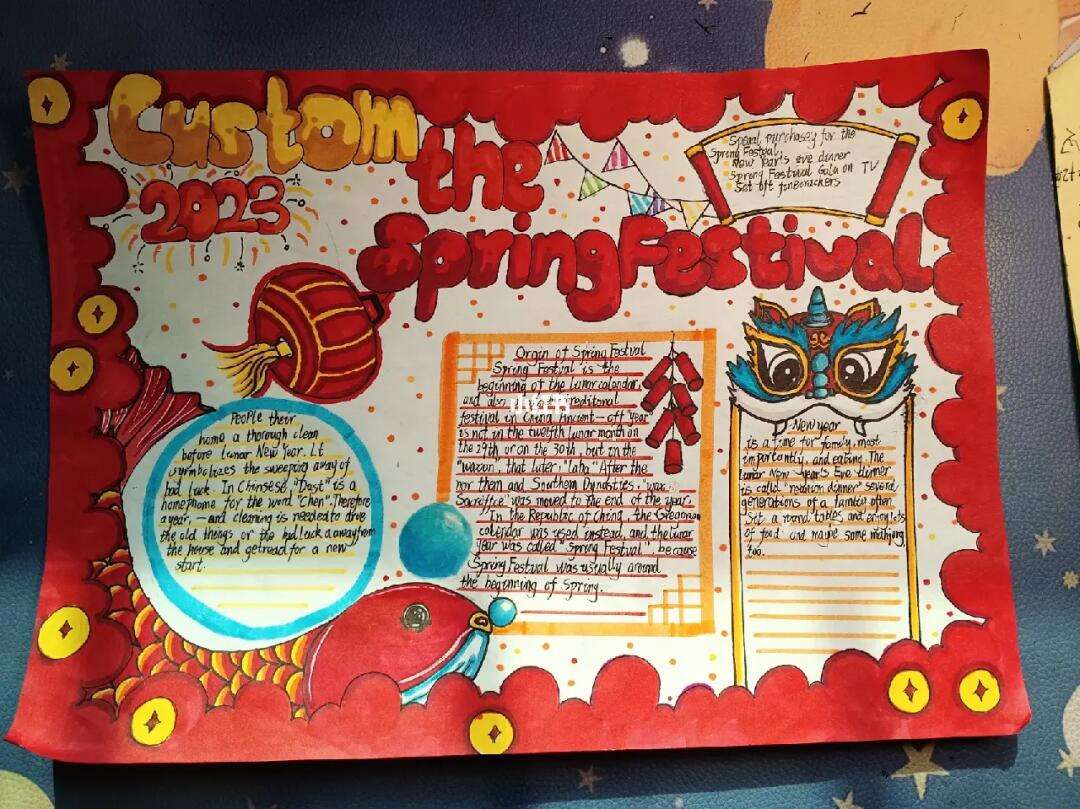 Custom
2023
the
Spring Festival
Speial purchasey for the
Spring Festval,
New Years eve dinner
Spring Festival Gala on TV
Set off firecrackers
People their
home a thorough clean
before lunar New Year. Lt
symbolizes the sweeping away of
bad luck. In Chinsese, "Dast" is a
homephome for the word "Chen", Therefore
a year, — and cleaning is needed to drive
the old things or the bad luck a away from
the house and get read for a new
start.
Orgin of Spring Festval
Spring Festival is the
beginning of the lunar calendar,
and also treditonal
festival in China Ancient- off "year"
is not in the twelfth lunar month on
the 29th or on the 30th, but in the
"wacon", that later "laba" After the
nor them and Southern Dynasties,
Sacrifice was moved to the end of the year.
In the Republic of China, the Gregorian
calendar was used instead, and the lunar
year was called "spring Festival" because
Spring Festival was usually around
the beginning of Spring.
小红书
New year
is a time for family, most
importantly, and eating. The
lunar New year's Eve dinner
is called "reunion dinner" several
generations of a familie often
Sit a round tables and enjoy lots
of food and maybe some mahjong,
too.